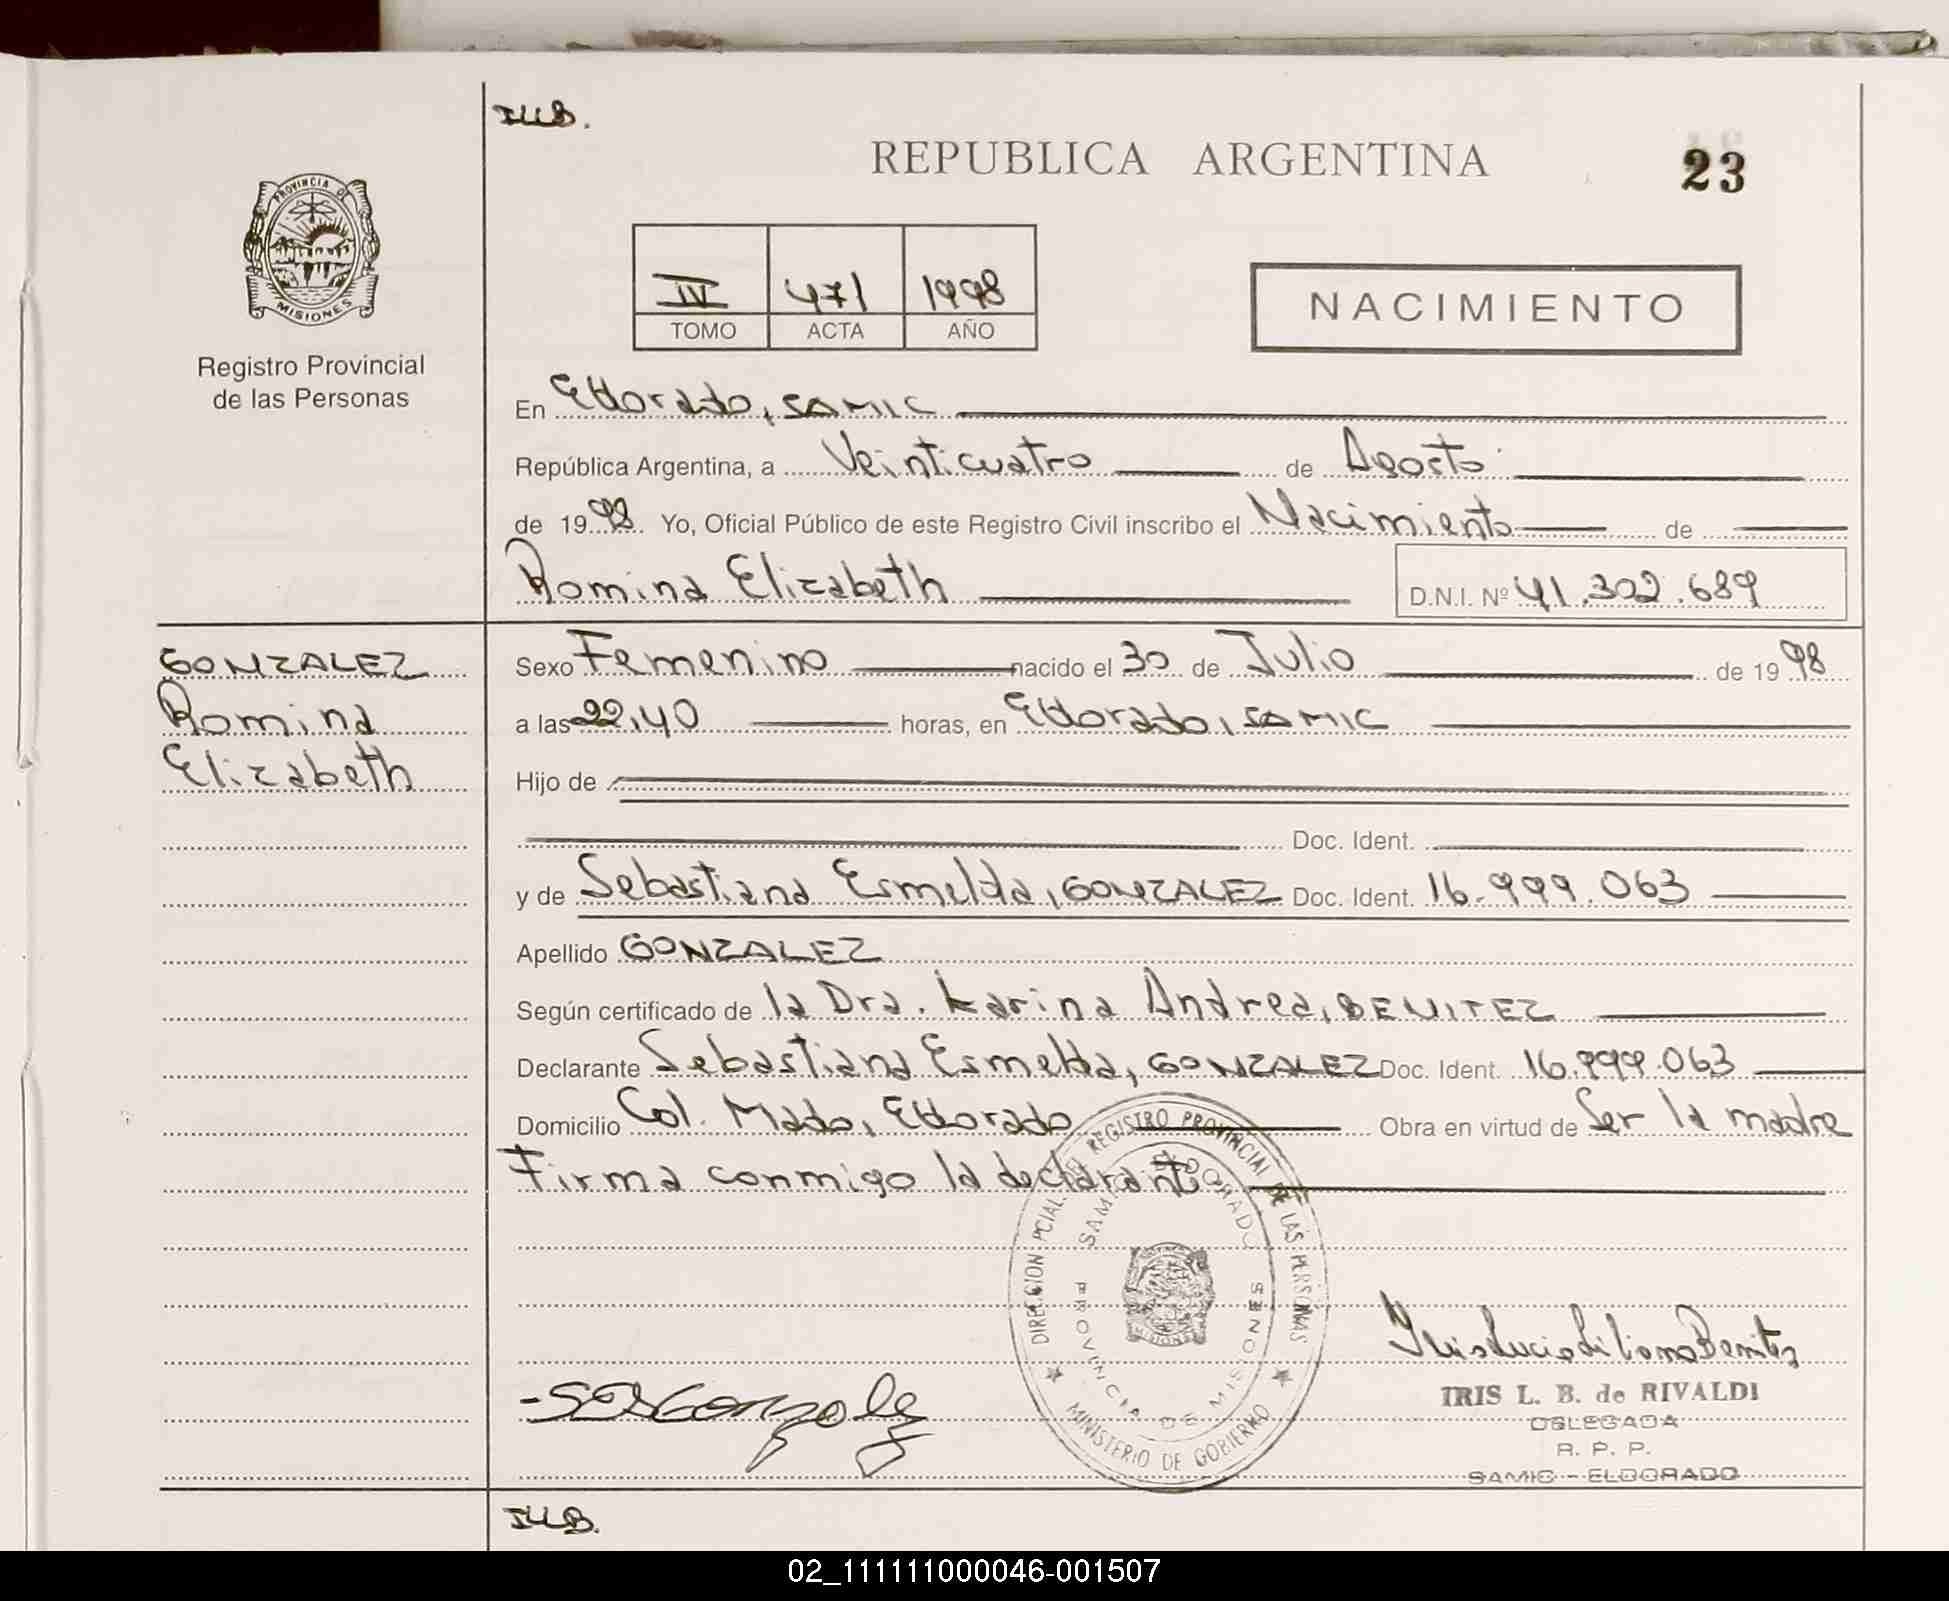 ILLB.
REPUBLICA ARGENTINA
23
PROVINCIA DE
MISIONES
Registro Provincial
de las Personas
IV 471 1998
TOMO ACTA AÑO
NACIMIENTO
En Eldorado, SAMIC
República Argentina, a Veinticuatro de Agosto
de 1998 Yo, Oficial Público de este Registro Civil inscribo el Nacimiento de
Romina Elizabeth D.N.I. Nº 41.302.689
GONZALEZ
Romina
Elizabeth
Sexo Femenino nacido el 30 de Julio de 1998
a las 22,40 horas, en Eldorado, SAMIC
Hijo de
Doc. Ident.
y de Sebastiana Esmelda, GONZALEZ Doc. Ident. 16.999.063
Apellido GONZALEZ
Según certificado de la Dra. Karina Andrea, BENITEZ
Declarante Sebastiana Esmelda, GONZALEZ Doc. Ident. 16.999.063
Domicilio Col. Mado, Eldorado Obra en virtud de Ser la madre
Firma conmigo la declarante
DIRECCION PCIAL. DEL REGISTRO PROVINCIAL DE LAS PERSONAS
SAMIC ELDORADO
PROVINCIA DE MISIONES
MINISTERIO DE GOBIERNO
Iris Lucia Liliana Benitez
IRIS L. B. de RIVALDI
DELEGADA
R. P. P.
SAMIC - ELDORADO
ILLB.
02_111111000046-001507